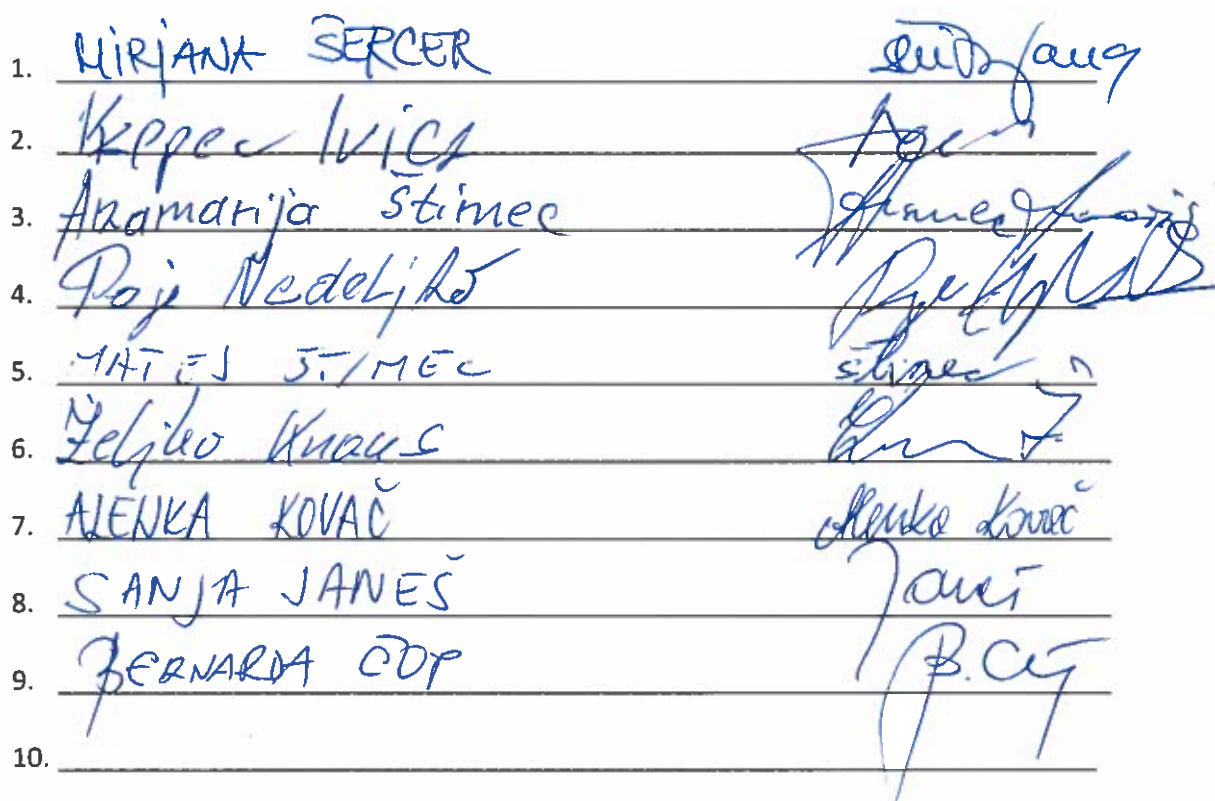 1. MIRJANA ŠERCER
2. Krepec Ivica
3. Anamarija Štimec Štimec Anamarija
4. Poje Nedeljko Poje
5. MATEJ ŠTIMEC Štimec
6. Željko Knaus
7. ALENKA KOVAČ Alenka Kovač
8. SANJA JANEŠ Janeš
9. BERNARDA ČOP B. Čop
10.